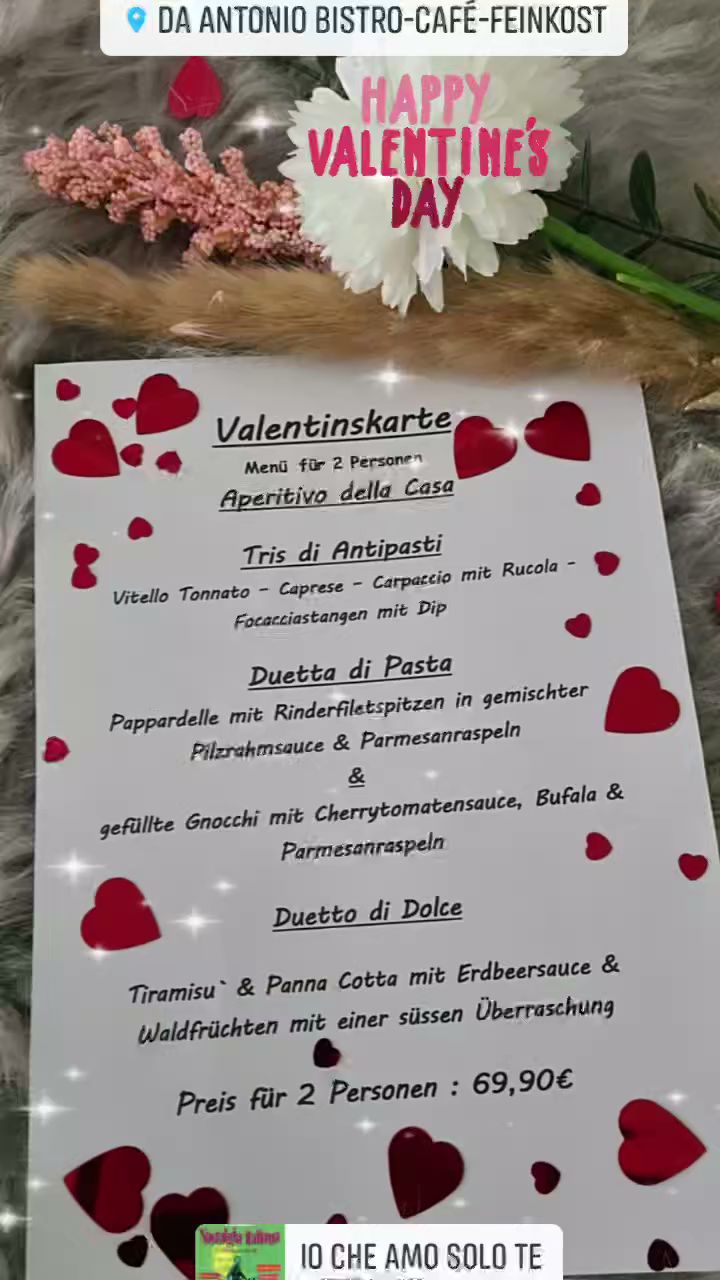 DA ANTONIO BISTRO-CAFÉ-FEINKOST
HAPPY
VALENTINE'S
DAY
Valentinskarte
Menü für 2 Personen
Aperitivo della Casa
Tris di Antipasti
Vitello Tonnato - Caprese - Carpaccio mit Rucola -
Focacciastangen mit Dip
Duetta di Pasta
Pappardelle mit Rinderfiletspitzen in gemischter
Pilzrahmsauce & Parmesanraspeln
&
gefüllte Gnocchi mit Cherrytomatensauce, Bufala &
Parmesanraspeln
Duetto di Dolce
Tiramisu` & Panna Cotta mit Erdbeersauce &
Waldfrüchten mit einer süssen Überraschung
Preis für 2 Personen : 69,90€
Nostalgia Italiana
IO CHE AMO SOLO TE